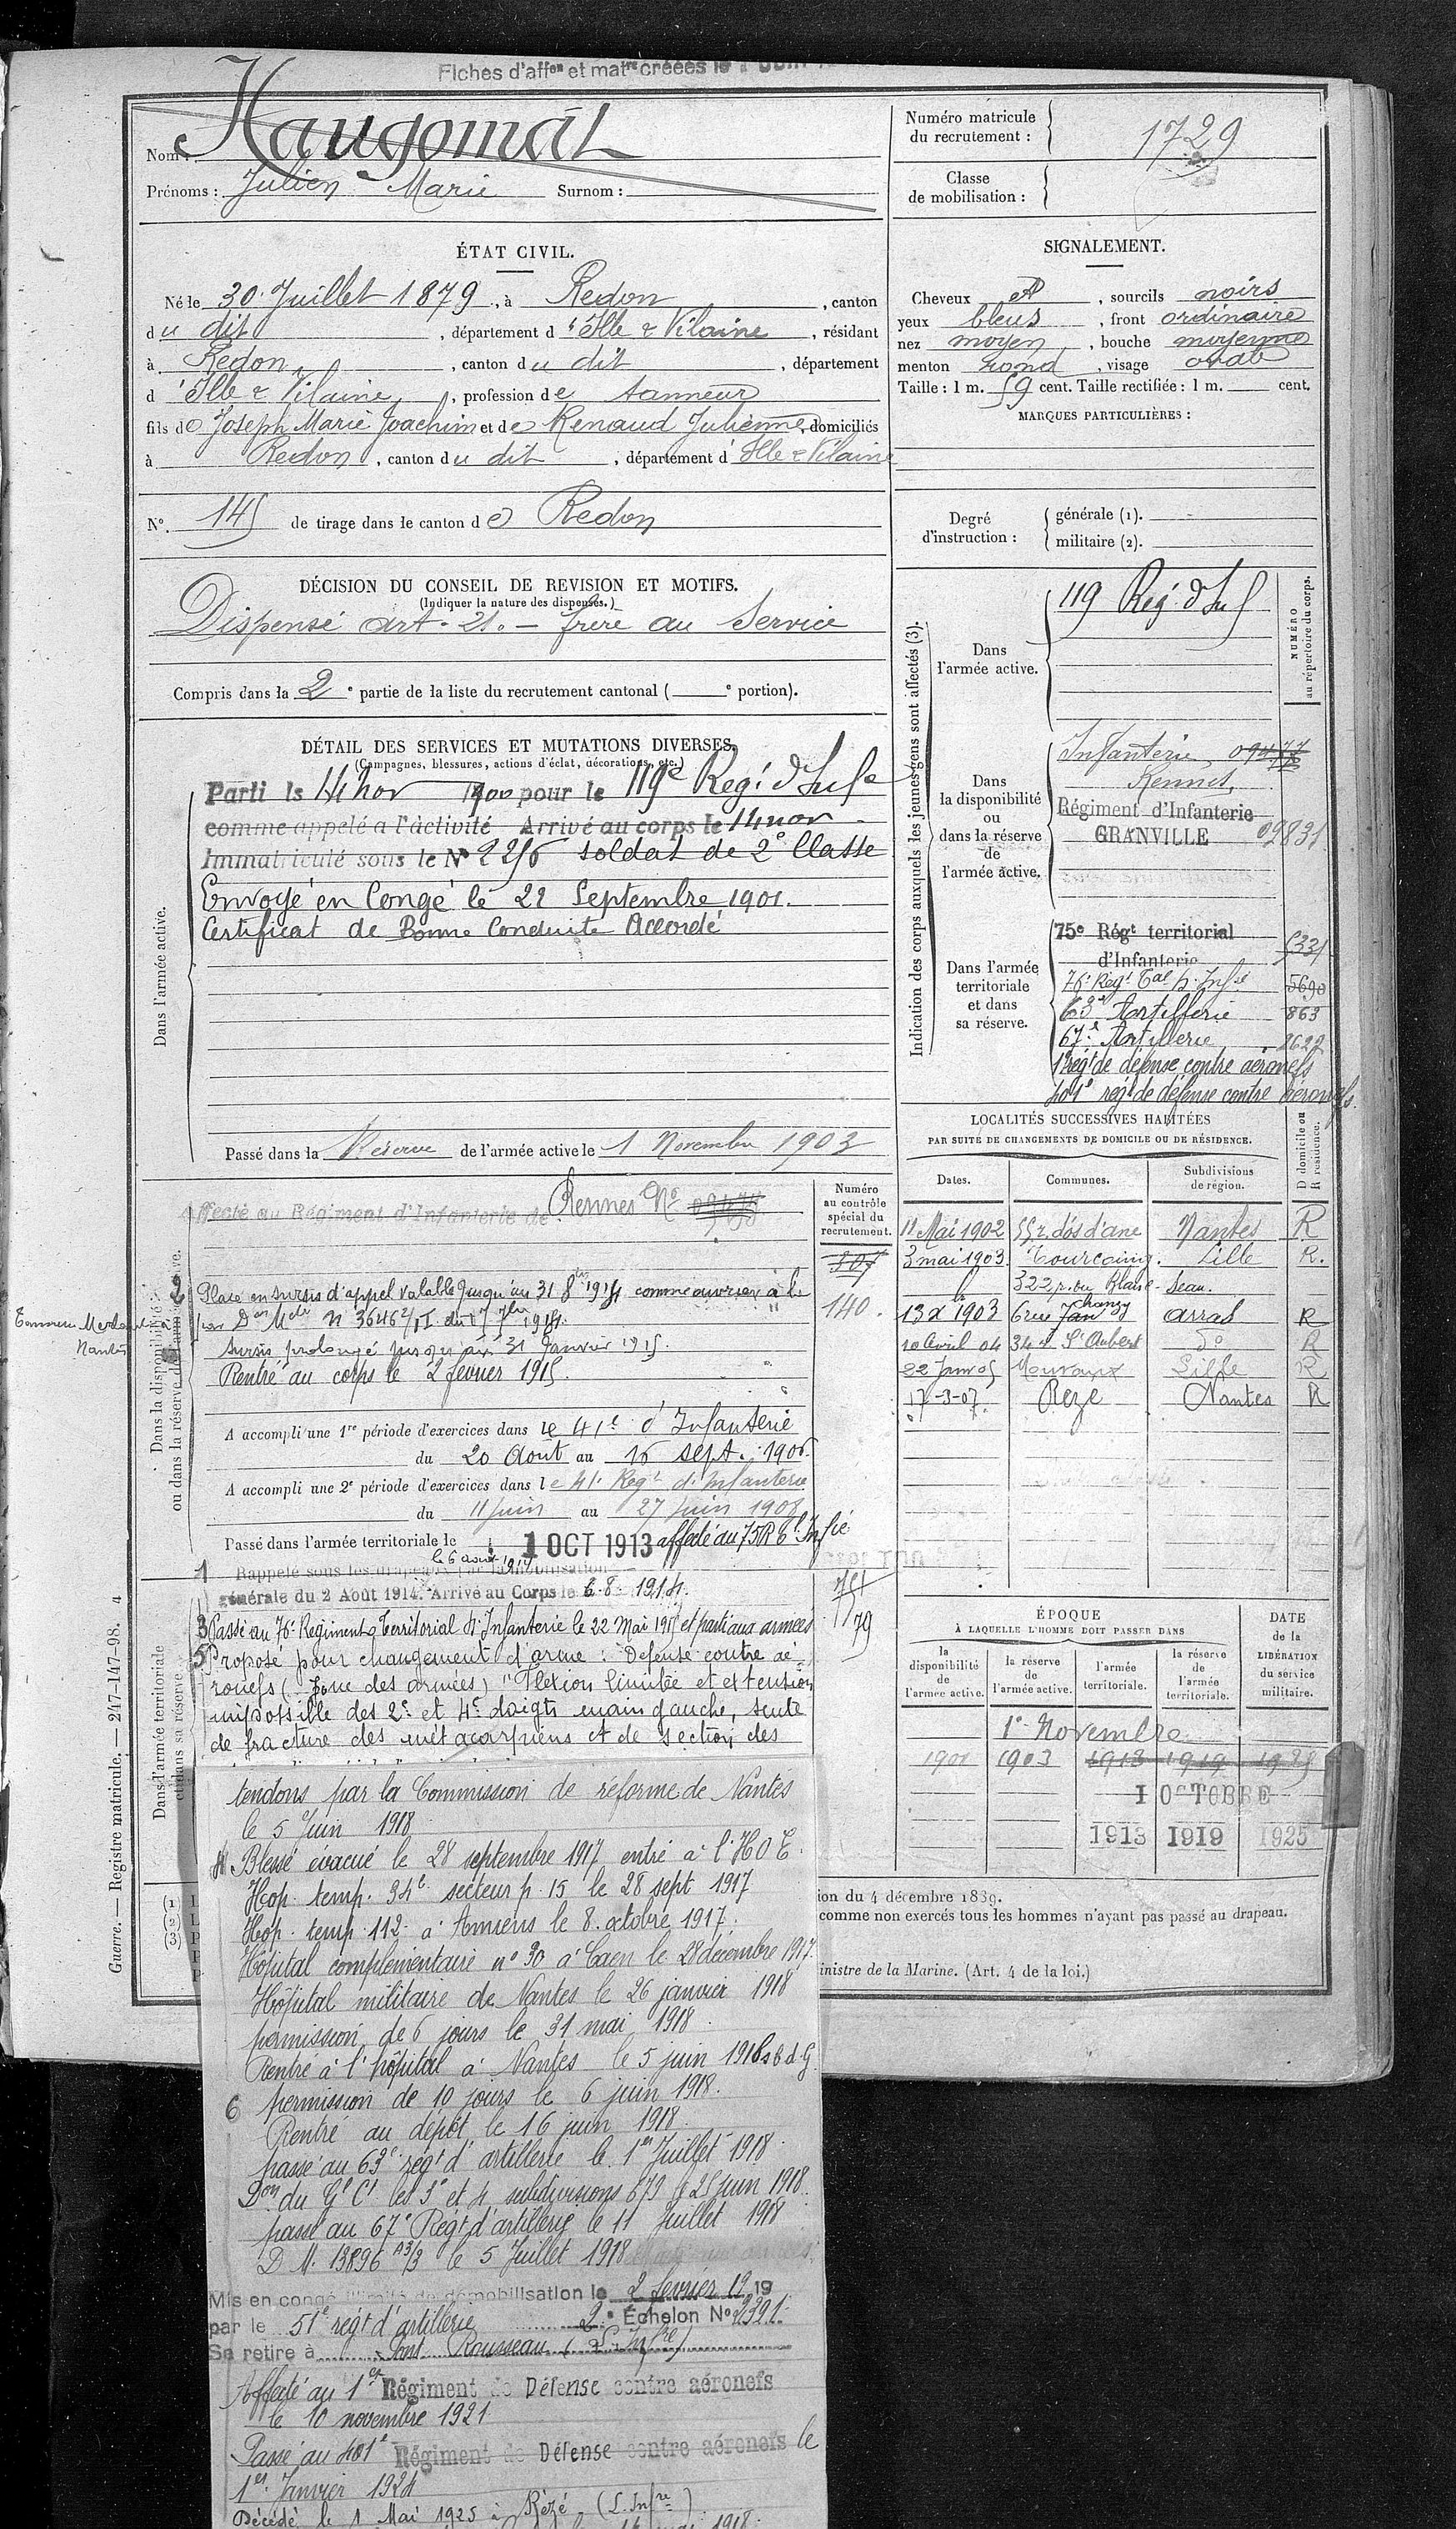 Fiches d'affon et matre créées le 1 JUIN
Haugomat
Nom :
Prénoms : Julien Marie Surnom :
Numéro matricule du recrutement : 1729
Classe de mobilisation :
ÉTAT CIVIL.
Né le 30 Juillet 1879, à Redon, canton
du dit, département d'Ille & Vilaine, résidant
à Redon, canton du dit, département
d'Ille & Vilaine, profession de tanneur
fils de Joseph Marie Joachim et de Renaud Julienne, domiciliés
à Redon, canton du dit, département d'Ille & Vilaine
N° 145 de tirage dans le canton de Redon
SIGNALEMENT.
Cheveux , sourcils noirs
yeux bleus, front ordinaire
nez moyen, bouche moyenne
menton rond, visage ovale
Taille : 1 m. 59 cent. Taille rectifiée : 1 m. cent.
MARQUES PARTICULIÈRES :
Degré d'instruction :
générale (1).
militaire (2).
DÉCISION DU CONSEIL DE REVISION ET MOTIFS.
(Indiquer la nature des dispenses.)
Dispensé art. 21. - frère au Service
Compris dans la 2e partie de la liste du recrutement cantonal ( e portion).
DÉTAIL DES SERVICES ET MUTATIONS DIVERSES.
(Campagnes, blessures, actions d'éclat, décorations, etc.)
Dans l'armée active.
Parti le 14 nov 1900 pour le 119e Reg. d'Infie
comme appelé à l'activité Arrivé au corps le 14 nov
Immatriculé sous le N° 2256 soldat de 2e Classe
Envoyé en Congé le 22 Septembre 1901.
Certificat de Bonne Conduite Accordé
Passé dans la Réserve de l'armée active le 1 Novembre 1903
Indication des corps auxquels les jeunes gens sont affectés (3).
NUMÉRO au répertoire du corps.
Dans l'armée active.
119 Reg. d'Inf
Dans la disponibilité ou dans la réserve de l'armée active.
Infanterie
Rennes
Régiment d'Infanterie
GRANVILLE 09831
Dans l'armée territoriale et dans sa réserve.
75e Régt territorial
d'Infanterie 5331
76e Régt Tal d'Infie 5690
63e Artillerie 863
67e Artillerie 2622
1er régt de défense contre aéronefs
401e régt de défense contre aéronefs
LOCALITÉS SUCCESSIVES HABITÉES
PAR SUITE DE CHANGEMENTS DE DOMICILE OU DE RÉSIDENCE.
Dates. Communes. Subdivisions de région. D domicile ou R résidence.
11 Mai 1902 55 r. dos d'ane Nantes R
3 mai 1903 Tourcoing. Lille R.
322 r. du Blanc-Seau.
13 X 1903 6 rue Chanzy Arras R
10 Avril 04 34 r St Aubert do R
22 Janv 05 Mouvaux Lille R
17-3-07. Reze Nantes R
Dans la disponibilité ou dans la réserve de l'armée active.
Numéro au contrôle spécial du recrutement.
Affecté au Régiment d'Infanterie de Rennes No
307
140.
Tannerie
Nantes
2 Placé en sursis d'appel valable jusqu'au 31 8bre 1914 comme ouvrier à la
par Don Melle N° 36462/I du 17 7bre 1914.
Sursis prolongé jusqu'au 31 Janvier 1915.
Rentré au corps le 2 fevrier 1915.
A accompli une 1re période d'exercices dans le 41e d'Infanterie
du 20 Aout au 16 sept. 1906.
A accompli une 2e période d'exercices dans le 41e Regt d'Infanterie
du 11 Juin au 27 Juin 1908
Passé dans l'armée territoriale le 1 OCT 1913 affecté au 75 R tl Infie
Dans l'armée territoriale et dans sa réserve
le 6 aout 1914
1 Rappelé sous les drapeaux par la mobilisation
générale du 2 Août 1914. Arrivé au Corps le 6-8-1914.
3 Passé au 76e Régiment Territorial d'Infanterie le 22 Mai 1915 et parti aux armées
5 Proposé pour changement d'arme : Défense contre aé-
ronefs (Zone des armées) "Flexion limitée et extension
impossible des 2e et 4e doigts main gauche, suite
de fracture des métacarpiens et de section des
tendons par la Commission de réforme de Nantes
le 5 Juin 1918
4 Blessé évacué le 28 septembre 1917 entré à l'H O E.
Hop. temp. 34e secteur p. 15 le 28 sept 1917
Hop. temp 112 à Amiens le 8 octobre 1917.
Hôpital complémentaire n° 30 à Caen le 28 décembre 1917.
Hôpital militaire de Nantes le 26 janvier 1918
permission de 6 jours le 31 mai 1918.
Rentré à l'hôpital à Nantes le 5 juin 1918
6 permission de 10 jours le 6 juin 1918.
Rentré au dépôt le 16 juin 1918.
passé au 63e régt d'artillerie le 1er Juillet 1918
Don du Gl Ct les 3e et 4 subdivisions 679 le 25 juin 1918.
passé au 67e Régt d'artillerie le 11 Juillet 1918
D M. 13896 A3/3 le 5 Juillet 1918
Mis en congé illimité de démobilisation le 2 fevrier 1919
par le 51e régt d'artillerie 2e Échelon N° 2321.
Se retire à Pont Rousseau (L. Infre)
Affecté au 1er Régiment de Défense contre aéronefs
le 10 novembre 1921
Passé au 401e Régiment de Défense contre aéronefs le
1er Janvier 1924
Décédé le 1 Mai 1925 à Rézé (L. Infre)
ÉPOQUE
À LAQUELLE L'HOMME DOIT PASSER DANS
la disponibilité de l'armée active. la réserve de l'armée active. l'armée territoriale. la réserve de l'armée territoriale. DATE de la LIBÉRATION du service militaire.
1er Novembre
1901 1903 1913 1919
1 OCTOBRE
1913 1919 1925
ion du 4 décembre 1889.
comme non exercés tous les hommes n'ayant pas passé au drapeau.
inistre de la Marine. (Art. 4 de la loi.)
(1)
(2)
(3)
Guerre. — Registre matricule. — 247-147-98. 4